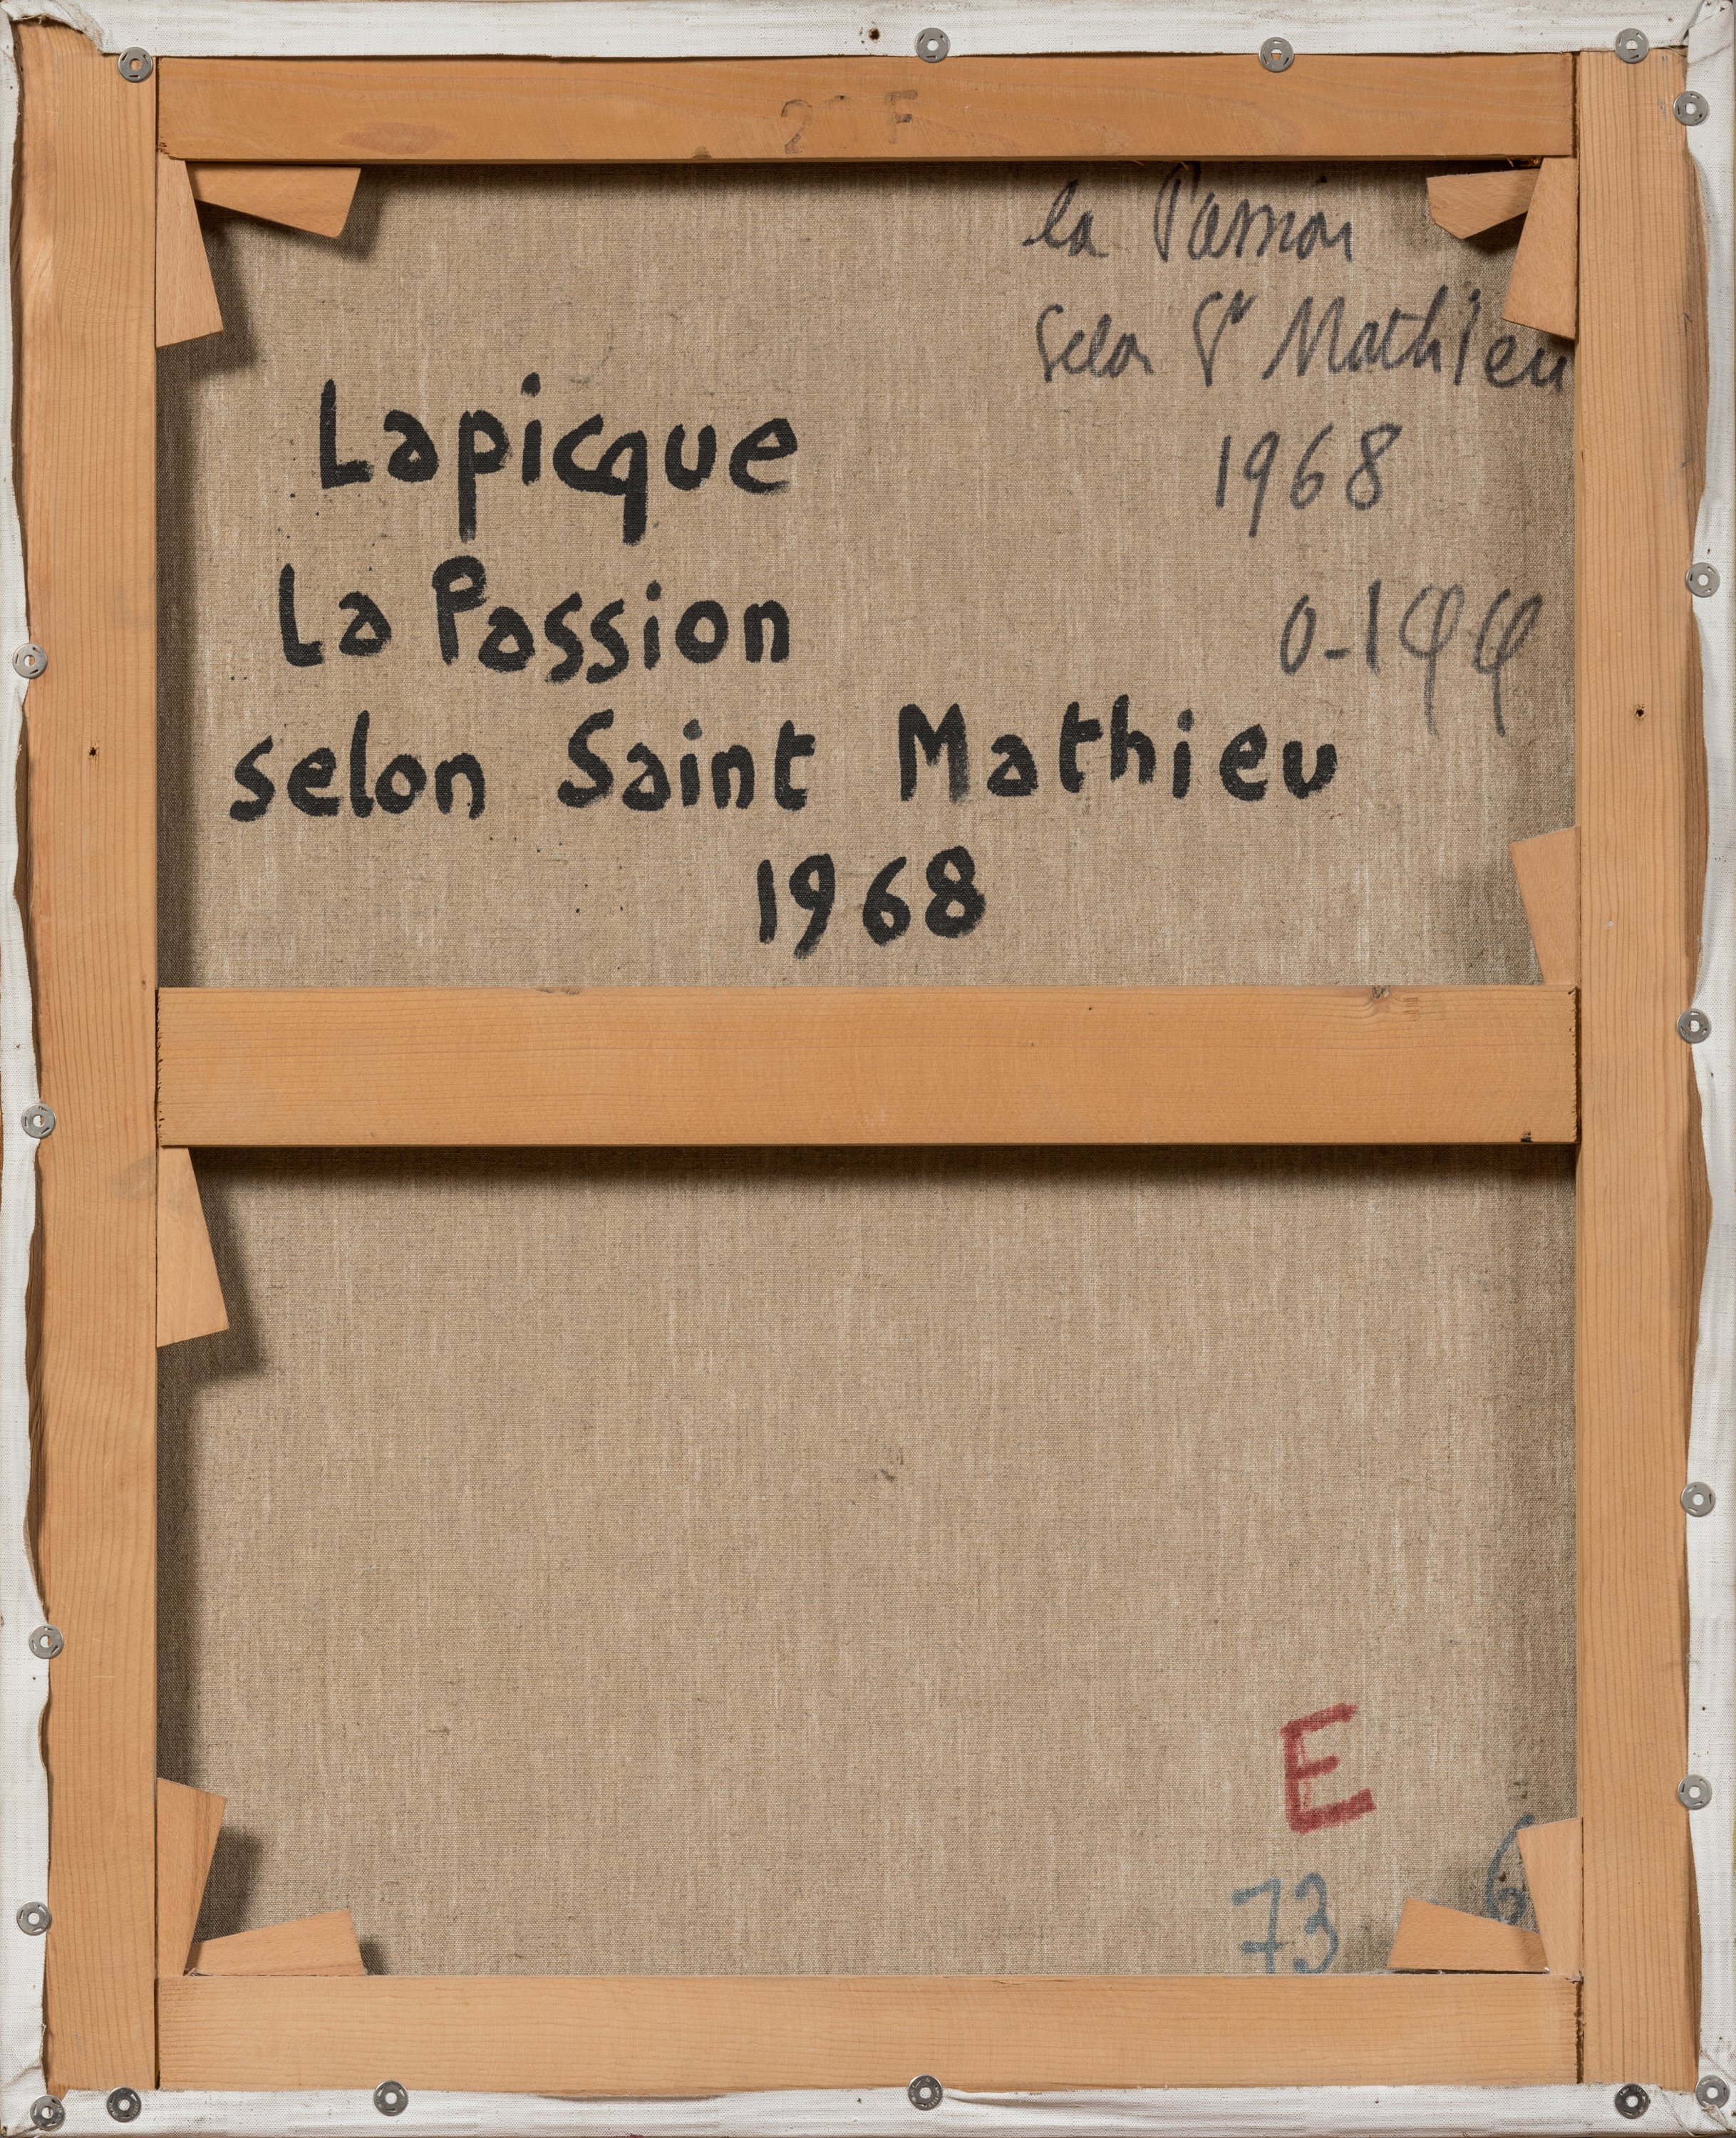 la Passion
selon St Mathieu
1968
Lapicque
La Passion
selon Saint Mathieu
1968
E
73
6